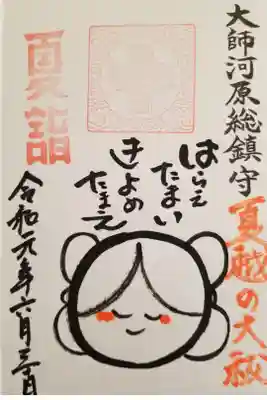 大師河原総鎮守
夏越の大祓
はらえ
たまい
きよめ
たまえ
夏詣
令和元年六月三十日